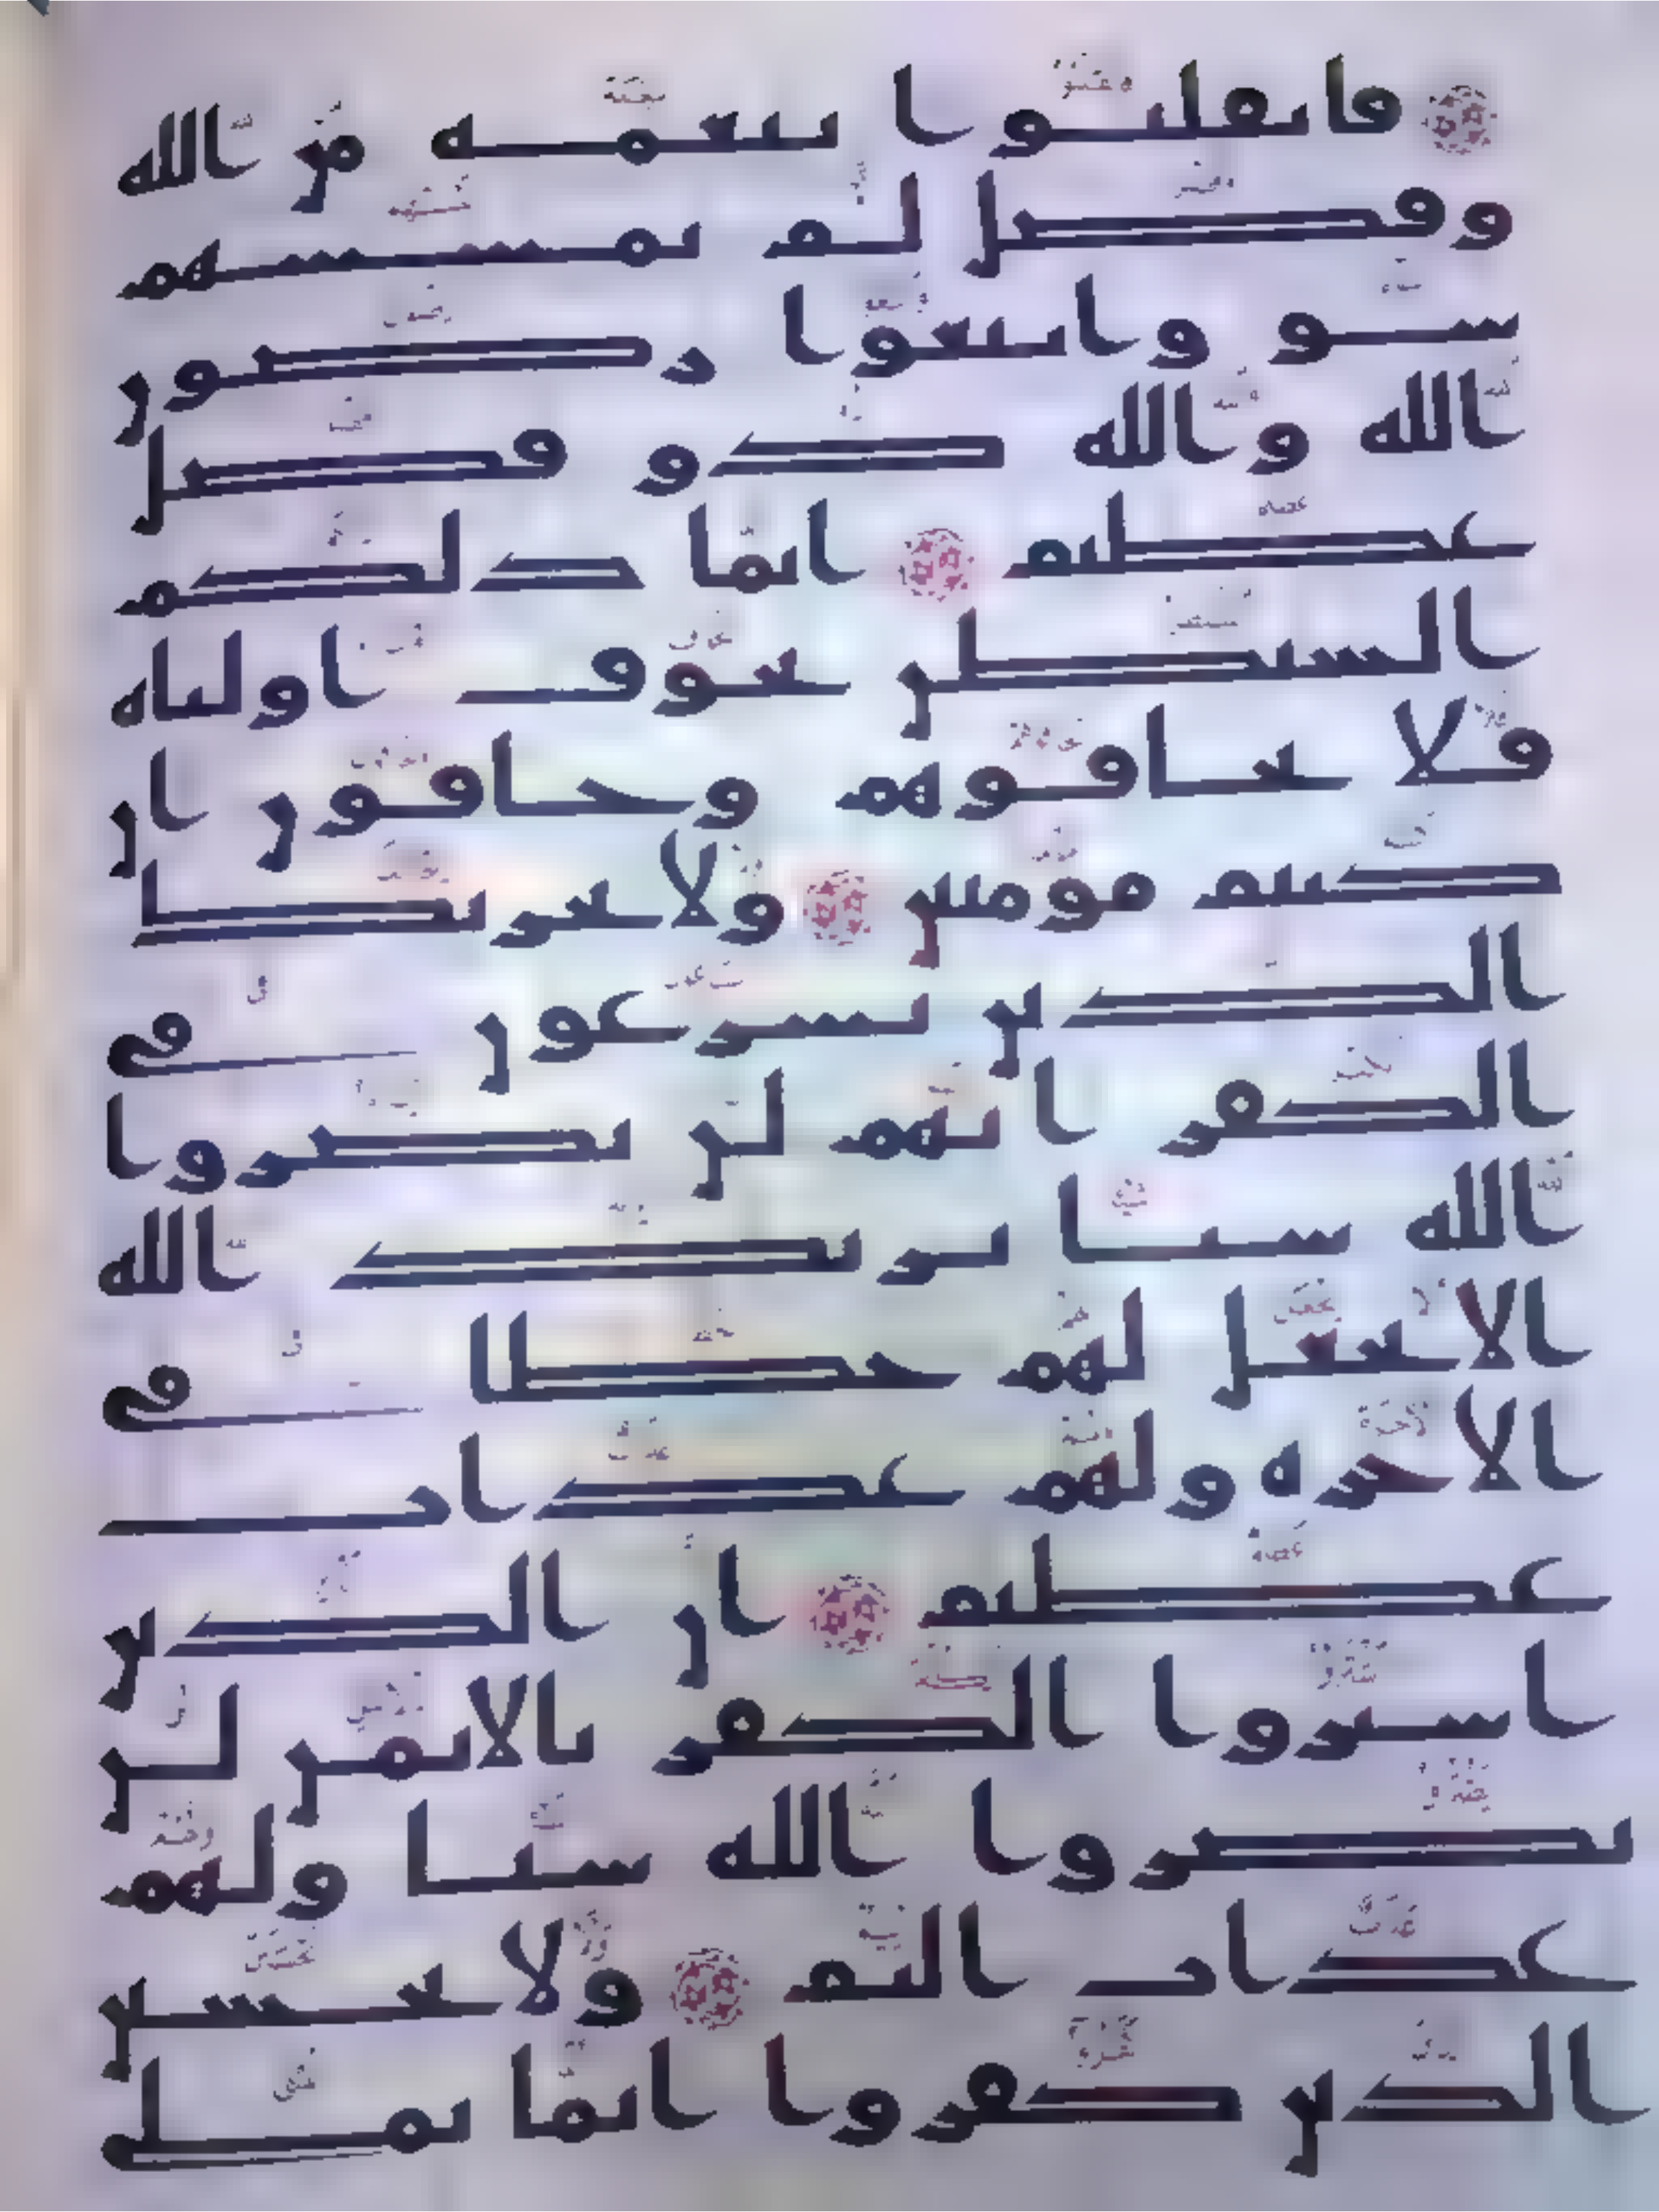 فانقلبوا بنعمه من الله
وفضل لم يمسسهم
سو واتبعوا رضون
الله والله ذو فضل
عظيم انما ذلكم
الشيطن يخوف اولياه
فلا تخافوهم وخافون ان
كنتم مومنين ولا يحزنك
الذين يسرعون في
الكفر انهم لن يضروا
الله شيا يريد الله
الا يجعل لهم حظا في
الاخره ولهم عذاب
عظيم ان الذين
اشتروا الكفر بالايمن لن
يضروا الله شيا ولهم
عذاب اليم ولا يحسبن
الذين كفروا انما نملي